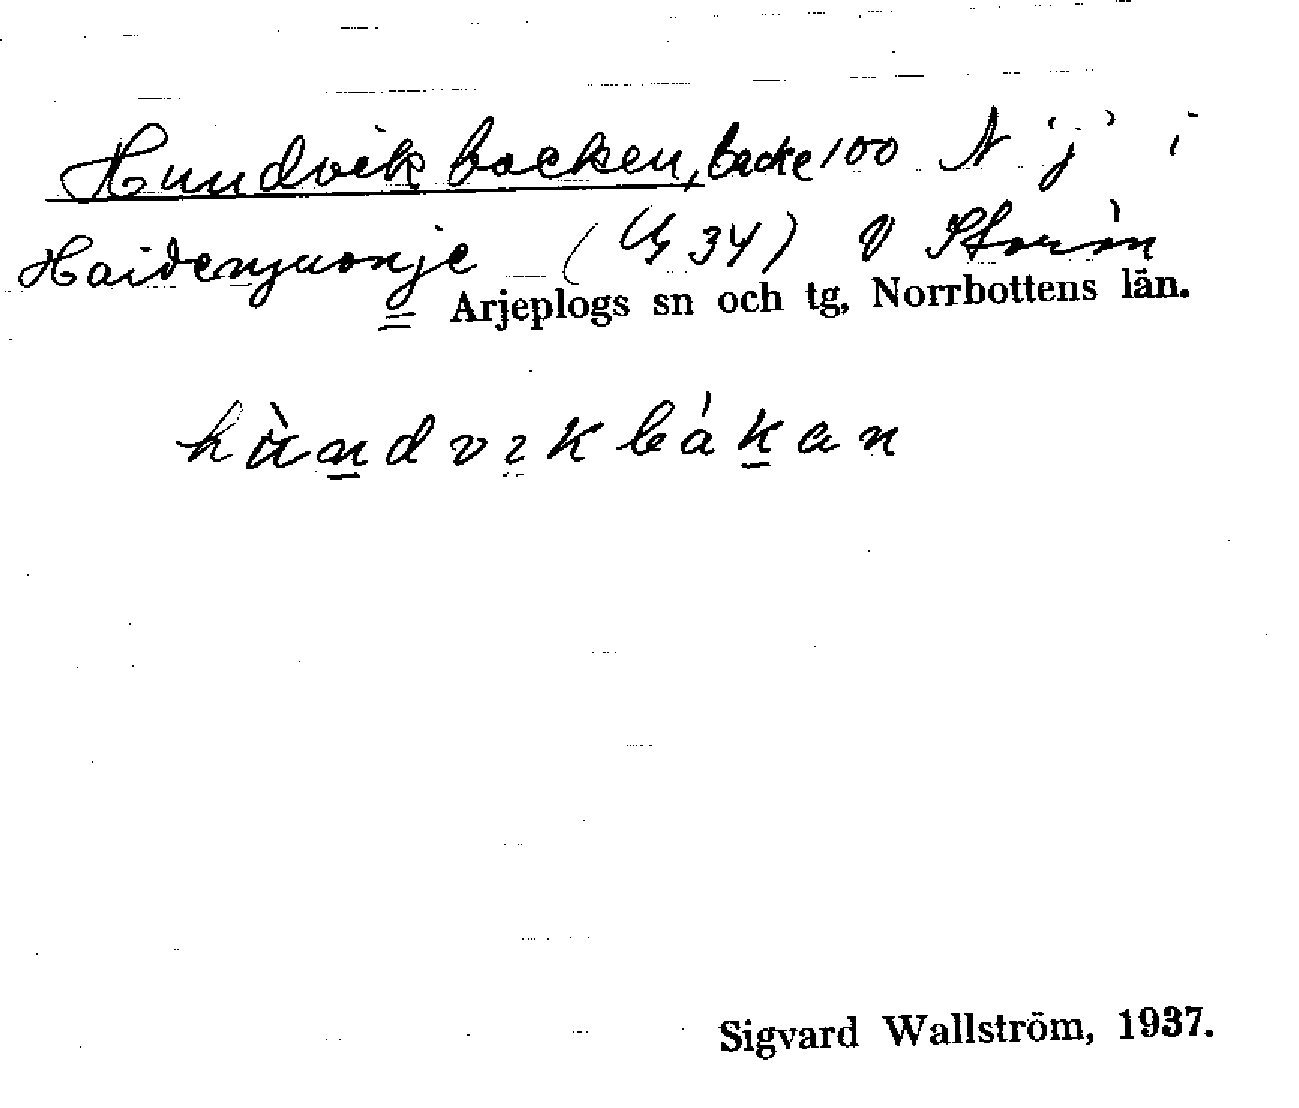 Hundvikbacken, backe 100 N 'j' i
Haidenjuonje (G 34) V Storön
Arjeplogs sn och tg, Norrbottens län.
hùndvikbákan
Sigvard Wallström, 1937.